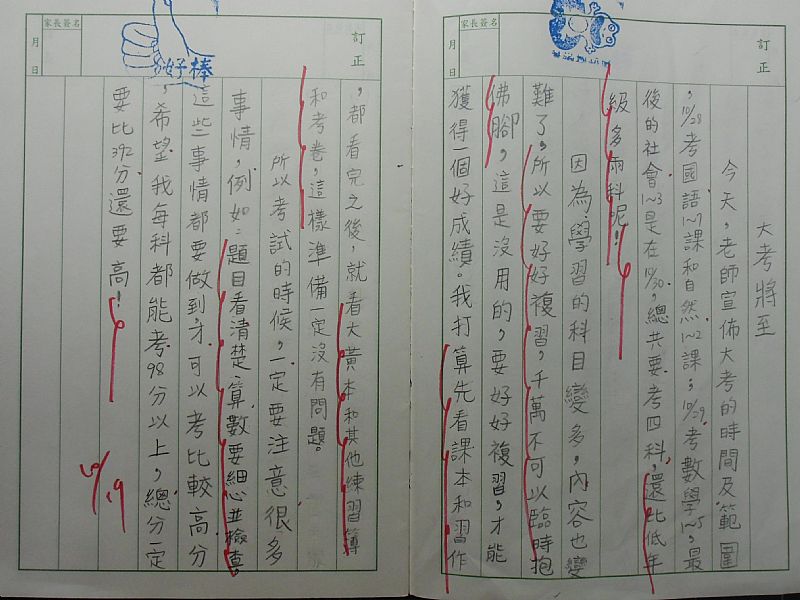 訂正
家長簽名
月 日
大考將至
今天,老師宣佈大考的時間及範圍
,10/28考國語1~7課和自然1~2課;10/29考數學1~5,最
後的社會1~3是在10/30,總共要考四科,還比低年
級多兩科呢!
因為學習的科目變多,內容也變
難了,所以要好好複習,千萬不可以臨時抱
佛腳,這是沒用的,要好好複習,才能
獲得一個好成績。我打算先看課本和習作
訂正
家長簽名
月 日
好棒
,都看完之後,就看大黃本和其他練習簿
和考卷,這樣準備一定沒有問題。
所以考試的時候,一定要注意很多
事情,例如:題目看清楚、算數要細心並檢查。
這些事情都要做到,才可以考比較高分
,希望我每科都能考98分以上,總分一定
要比392分還要高!
10/19